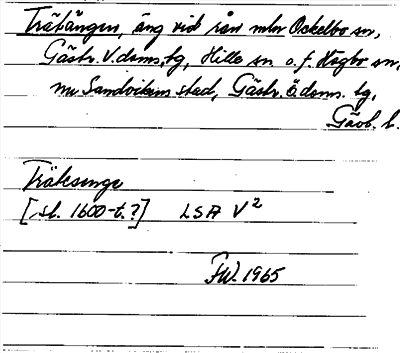 Träkängen, äng vid rån mlm Ockelbo sn,
Gästr. V. doms. tg, Hille sn o. f. Högbo sn,
nu Sandvikens stad, Gästr. Ö. doms. tg,
Gävl. l.
Träksenge
[sl. 1600-t.?] LSA V²
FW. 1965